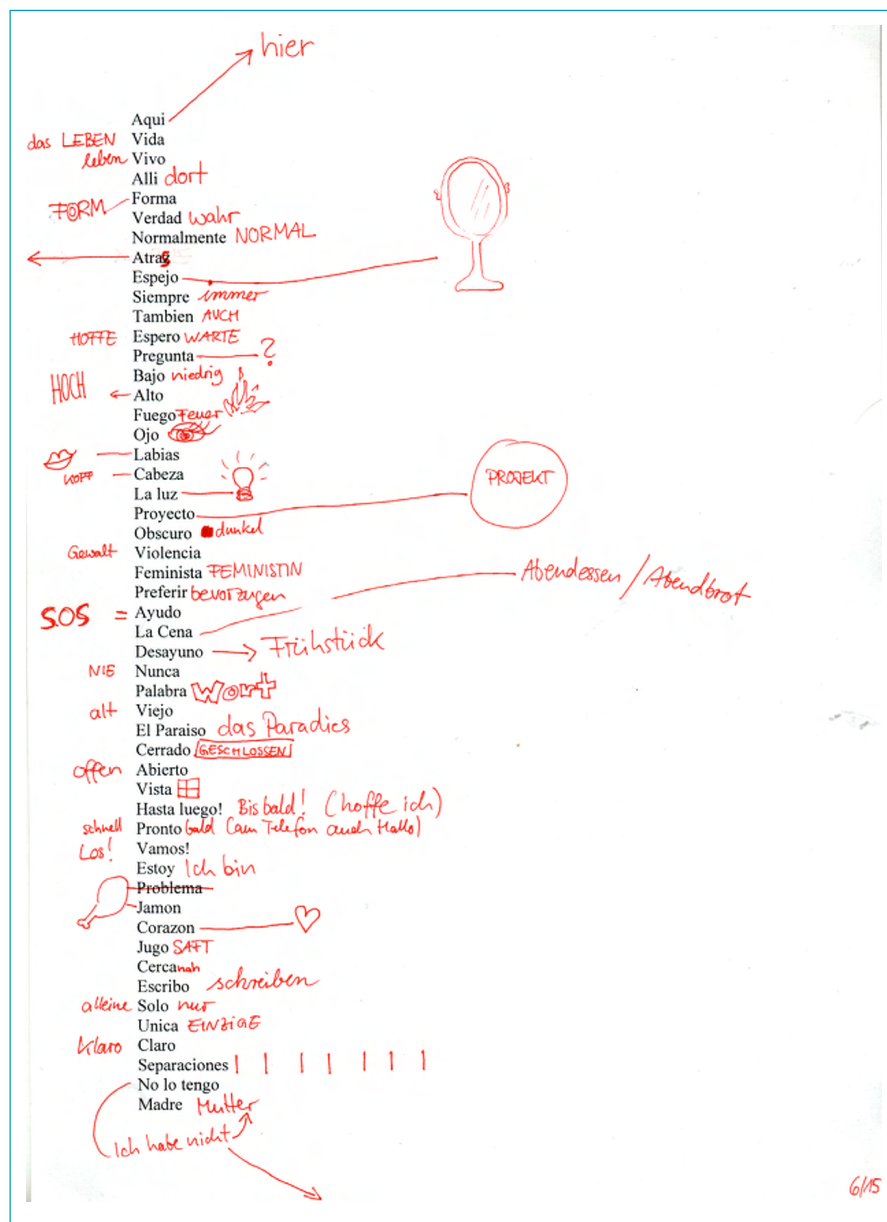 hier
Aqui
das LEBEN Vida
leben Vivo
Alli dort
FORM Forma
Verdad wahr
Normalmente NORMAL
Atras
Espejo
Siempre immer
Tambien AUCH
HOFFE Espero WARTE
Pregunta ?
Bajo niedrig
HOCH Alto
Fuego Feuer
Ojo
Labias
KOPF Cabeza
La luz
Proyecto PROJEKT
Obscuro dunkel
Gewalt Violencia
Feminista FEMINISTIN
Preferir bevorzugen
SOS = Ayudo
La Cena Abendessen / Abendbrot
Desayuno Frühstück
NIE Nunca
Palabra Wort
alt Viejo
El Paraiso das Paradies
Cerrado GESCHLOSSEN
offen Abierto
Vista
Hasta luego! Bis bald! (hoffe ich)
schnell Pronto bald (am Telefon auch Hallo)
Los! Vamos!
Estoy Ich bin
Problema
Jamon
Corazon
Jugo SAFT
Cerca nah
Escribo schreiben
alleine Solo nur
Unica EINZIGE
klaro Claro
Separaciones | | | | | | |
No lo tengo
Madre Mutter
Ich habe nicht
6/15